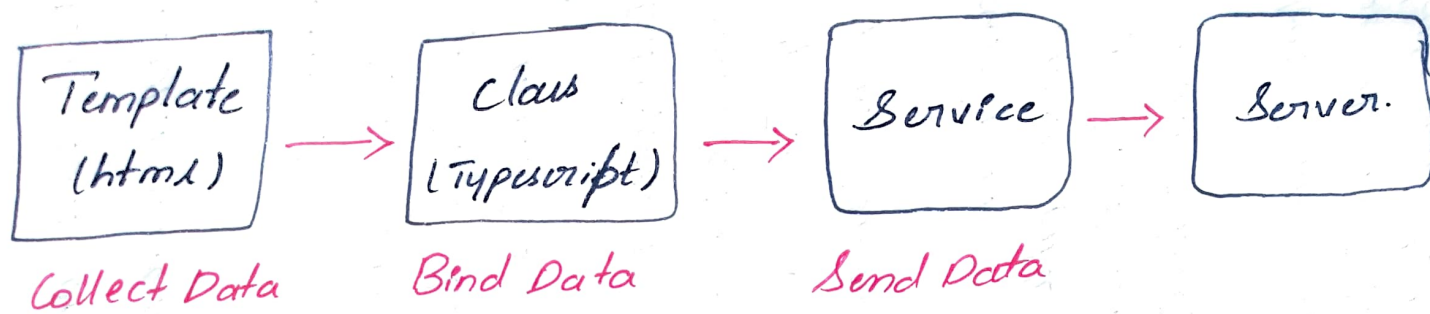 Template
(html)
Class
(Typescript)
Service
Server.
Collect Data
Bind Data
Send Data